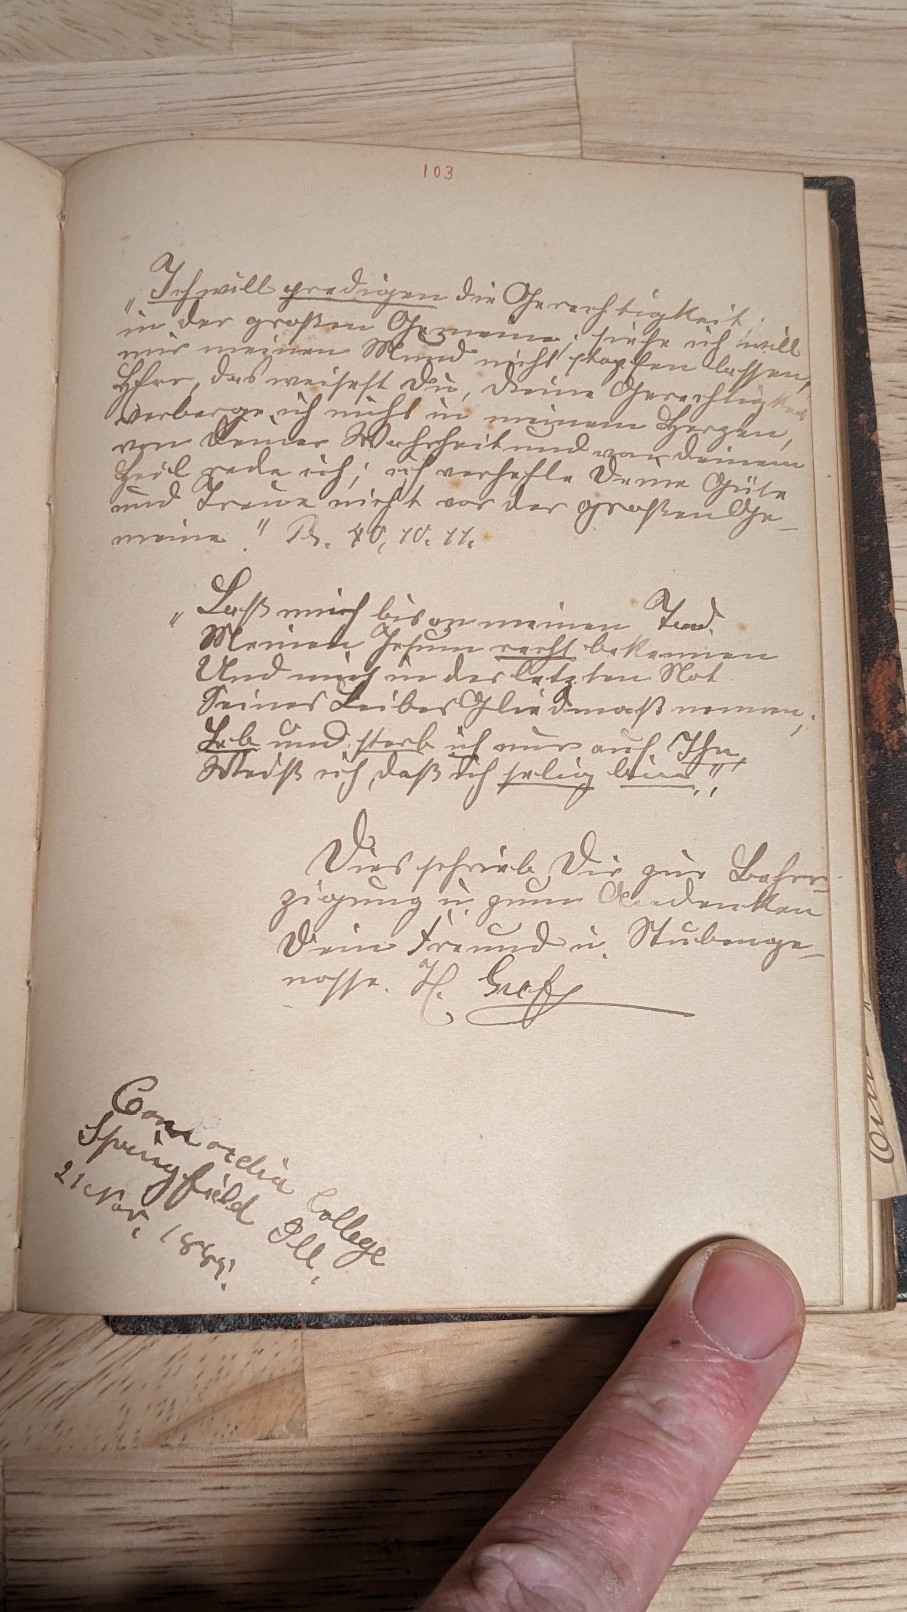 103
„Ich will predigen die Gerechtigkeit
in der großen Gemeine; siehe ich will
mir meinen Mund nicht stopfen lassen,
HErr, das weisest Du, Deine Gerechtigkeit
verberge ich nicht in meinem Herzen,
von Deiner Wahrheit und von Deinem
Heil rede ich; ich verhehle Deine Güte
und Treue nicht vor der großen Ge-
meine." Ps. 40, 10. 11.
„Laß mich bis an meinen Tod
Meinen Jesum recht bekennen
Und mich in der letzten Not
Seines Leibes Gliedmaß nennen;
Leb und sterb ich nur auf Ihn,
Weiß ich, daß ich selig bin."
Dies schrieb Dir zur Beher-
zigung u. zum Andenken
Dein Freund u. Stubenge-
nosse. H. Graf
Concordia College
Springfield Ill.
21 Nov. 1889.